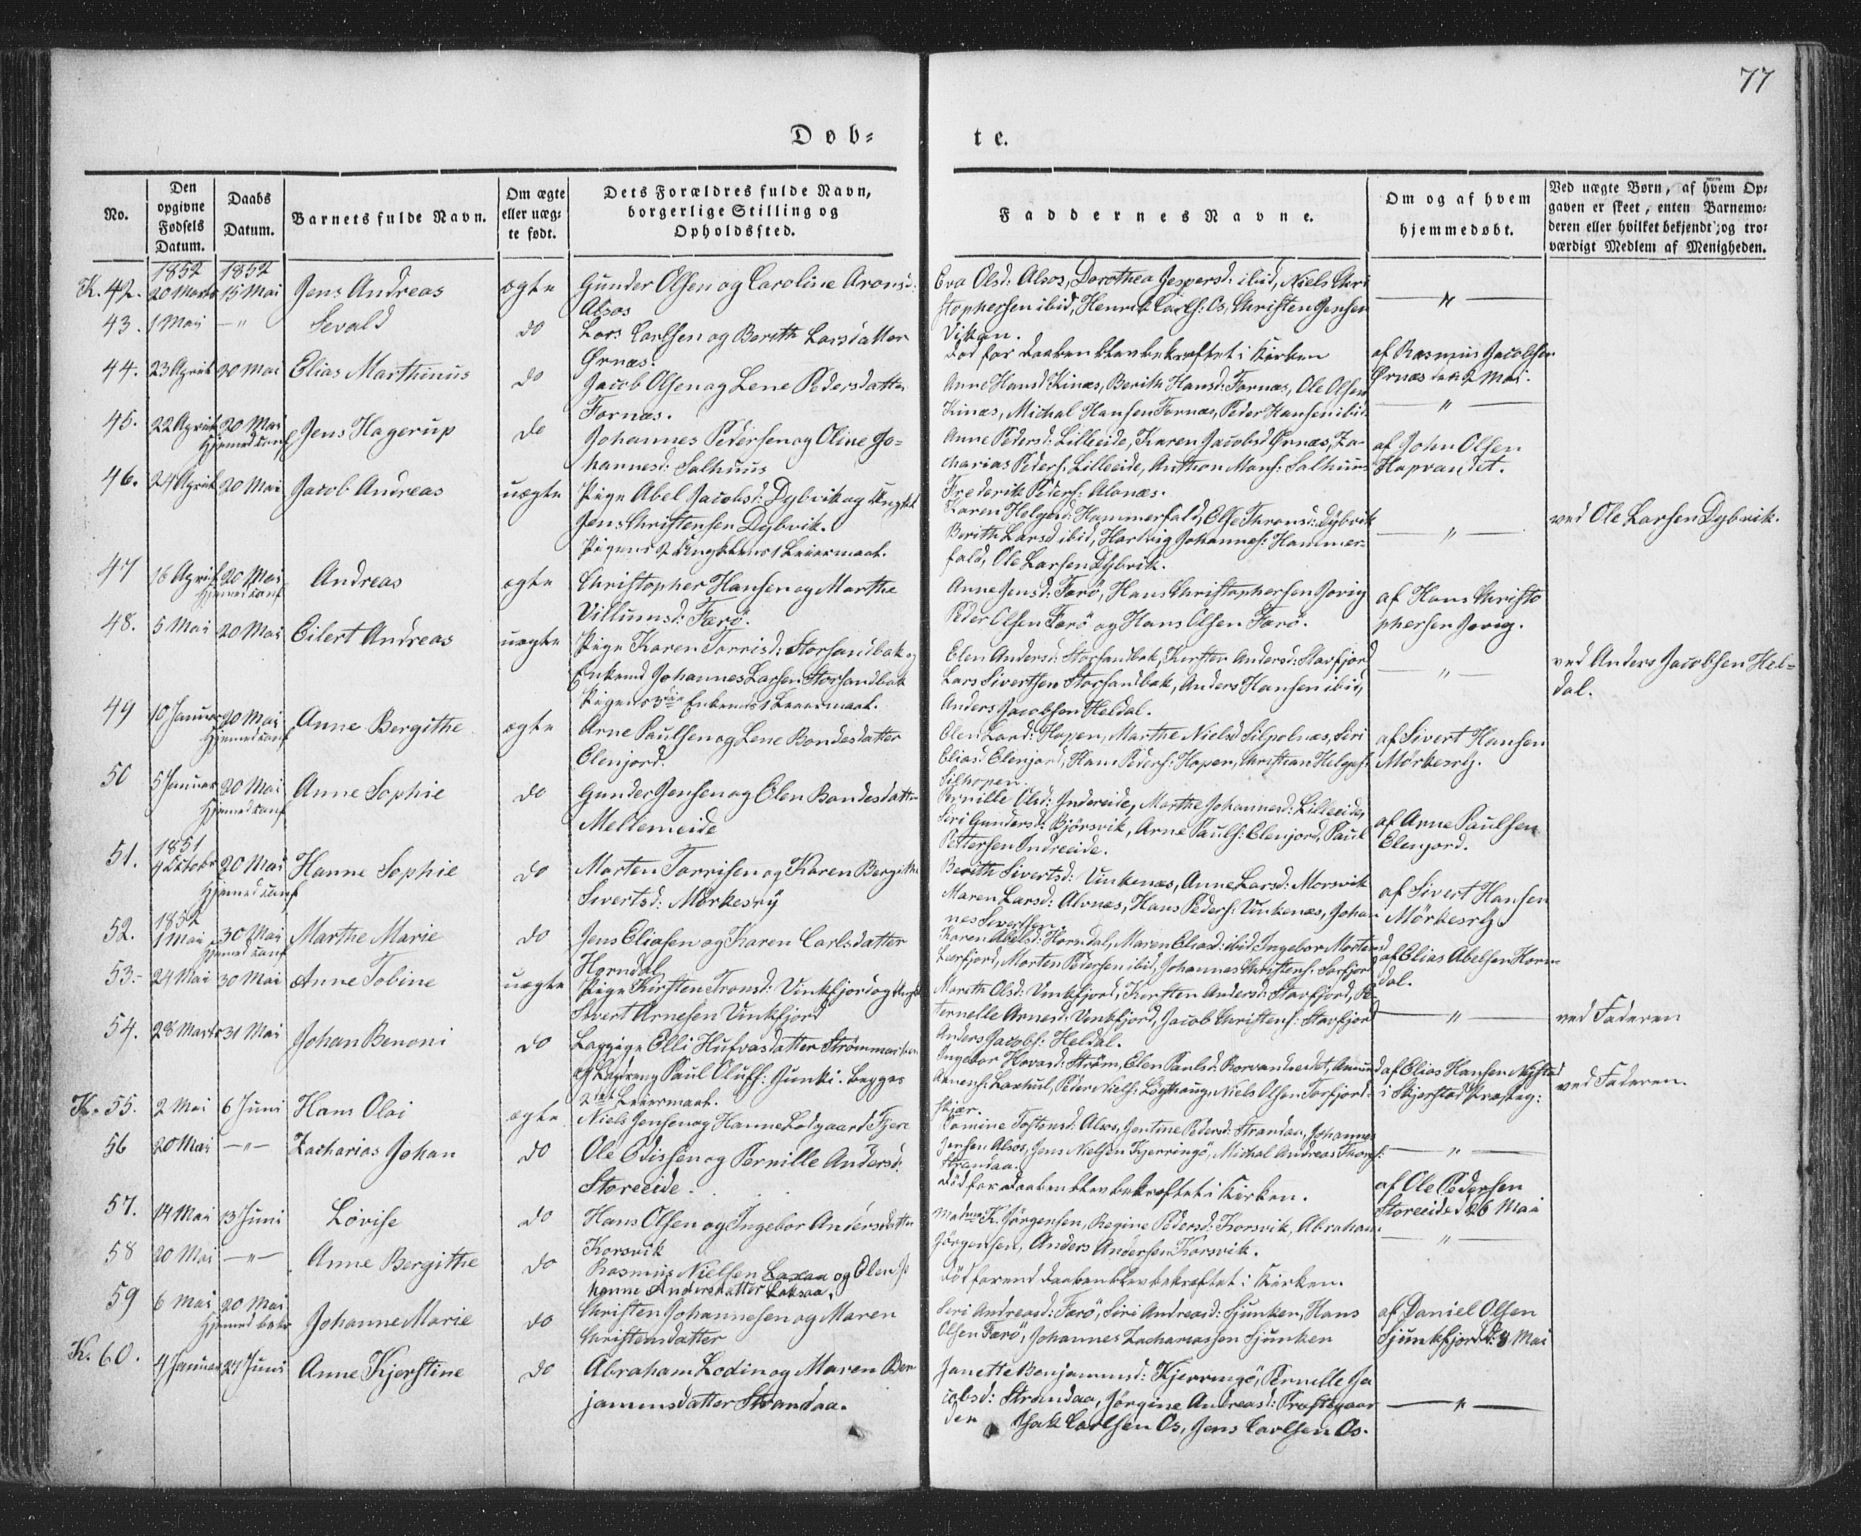 77
Døb=
te.
No.
Den opgivne Fødsels Datum.
Daabs Datum.
Barnets fulde Navn.
Om ægte eller uæg-te født.
Dets Forældres fulde Navn, borgerlige Stilling og Opholdssted.
Faddernes Navne.
Om og af hvem hjemmedøbt.
Ved uægte Børn, af hvem Op-gaven er skeet, enten Barnemo-deren eller hvilket bekjendt og tro-værdigt Medlem af Menigheden.
1852 1852
K. 42. 20 Marts 15 Mai Jens Andreas ægte Gunder Olsen og Caroline Aronsd:
Alsos
Eva Olsd: Alsos, Dorothea Jespersd: ibid, Niels Chri
stophersen ibid, Henrik Carls: Os, Christen Jensen
43. 1 Mai —"— Sevald do Lars Carlsen og Berith Larsdatter
Ørnæs.
død før Daaben blev bekræftet i Kirken
af Rasmus Jacobsen
Ørnæs den 2 Mai.
44. 23 April 20 Mai Elias Marthinus do Jacob Olsen og Lene Pedersdatter
Fornæs.
Anne Hansd Kinæs, Berith Hansd: Fornæs, Ole Olsen
Kinæs, Michal Hansen Fornæs, Peder Hansen ibid.
—"—
45. 22 April 20 Mai Jens Hagerup do Johannes Pedersen og Oline Jo-
Hjemmed conf
hannesd: Salhuus
Anne Pedersd: Lilleeide, Karen Jacobsd Ørnæs, Za-
charias Peders: Lilleeide, Anthon Mons: Salhuus
Frederik Peders: Alonæs.
af John Olsen
Hopvandet.
46. 24 April 20 Mai Jacob Andreas uægte Pige Abel Jacobsd: Dybvik og Ungk:
Jens Christensen Dybvik.
Pigens 2 Ungklens 1 Leiermaal.
Karen Helgesd: Hammerfald, Else Thronsd: Dybvik
Berith Larsd ibid, Hartvig Johannes: Hammer-
fald, Ole Larsen Dybvik.
—"—
ved Ole Larsen Dybvik.
47 16 April 20 Mai Andreas ægte Christopher Hansen og Marthe
Hjemmed conf
Villumsd: Færø.
Anne Jensd: Færö, Hans Christophersen Jovig
Peder Olsen Færö og Hans Olsen Færö.
af Hans Christo
phersen Jovig.
48. 5 Mai 20 Mai Eilert Andreas uægte Pige Karen Torrisd: Storsandbak og
Enkemd Johannes Larsen Storsandbak
Pigens 3die Enkemds 1 Leiermaal.
Elen Andersd: Storsandbak, Kersten Andersd: Storfjord
Lars Sivertsen Storsandbak, Anders Hansen ibid,
Anders Jacobsen Heldal.
—"—
ved Anders Jacobsen Hel-
dal.
49 10 Januar 20 Mai Anne Bergithe ægte Arne Paulsen og Lene Bondesdatter
Hjemmed conf
Elenjord.
Elen Larsd: Hopen, Marthe Nielsd Silpolnæs, Siri
Eliasd: Elenjord, Hans Peders: Hopen, Christian Helges:
Silhopen.
af Sivert Hansen
Mørkesry.
50 5 Januar 20 Mai Anne Sophie do Gunder Jensen og Elen Bondesdatter
Hjemmed conf
Mellemeide
Pernille Olsd: Indreeide, Marthe Johannesd: Lilleeide,
Siri Gundersd: Bjørsvik, Arne Pauls: Elenjord, Paul
Pettersen Indreeide.
af Arne Paulsen
Elenjord.
1851
51. 9 Octobr 20 Mai Hanne Sophie do Morten Torrisen og Karen Bergithe
Hjemmed conf
Sivertsd: Mørkesry
Berith Sivertsd: Vinkenæs, Anne Larsd: Morsvik
Maren Larsd: Alvnæs, Hans Peders: Vinkenæs, Johan-
nes Sivertsen
af Sivert Hansen
Mørkesry
1852
52. 1 Mai 30 Mai Marthe Marie do Jens Eliasen og Karen Carlsdatter
Hjemmed conf
Horndal
Karen Abelsd: Horndal, Maren Eliasd: ibid Ingebor Mortensd
Sørfjord, Morten Pedersen ibid, Johannes Christens: Sørfjord
af Elias Abelsen Horn-
dal.
53. 24 Mai 30 Mai Anne Tobine uægte Pige Kirsten Tronsd: Vinkfjord og Ungk:
Sivert Arnesen Vinkfjord
Mareth Olsd: Vinkfjord, Kersten Andersd: Storfjord, Pe
ternelle Arnesd: Vinkfjord, Jacob Christens: Storfjord
Anders Jacobs: Heldal.
—"—
ved Faderen
54. 28 Marts 31 Mai Johan Benoni do Lappige Elli Hufvasdatter Strømmar
og Lapdreng Paul Oluff: Gunki. Begges
2det Leiermaal.
Ingebor Hovard: Strøm, Elen Paulsd: Rorvandsedet, Amund
Niels Olsen Torfjord-
skjær.
af Elias Hansen Nystad
i Skjerstad Præsteg:
ved Faderen.
K. 55. 2 Mai 6 Juni Hans Olai ægte Niels Jensen og Hanne Lødgaard Fjære
Tomine Tostensd: Alsos, Jentine Pedersd: Strandaa, Johannes
Jensen Alsos, Jens Nielsen Kjerringö, Michal Andreas Thors:
Strandaa.
—"—
56 20 Mai —"— Zacharias Johan do Ole Edissen og Pernille Andersd:
Storeeide.
død før Daaben blev bekræftet i Kirken.
af Ole Pedersen
Storeeide d 26 Mai
57. 14 Mai 13 Juni Lovise do Hans Olsen og Ingebor Andersdatter
Korsvik
Madme K. Jörgensen, Regine Pedersd: Korsvik, Abraham
Jörgensen, Anders Andersen Korsvik.
—"—
58 20 Mai —"— Anne Bergithe do Rasmus Nielsen Laxaa og Olen Jo
hanne Andersdatter Laksaa.
død forend Daaben blev bekræftet i Kirken.
59 6 Mai 20 Mai Johanne Marie do Christen Johannesen og Maren
Christensdatter
Siri Andreasd: Færö, Siri Andreasd: Sjunken, Hans
Olsen Færö, Johannes Zachariassen Sjunken
af Daniel Olsen
Sjunkfjord d: 8 Mai
K. 60. 4 Januar 27 Juni Anne Kjerstine do Abraham Lodin og Maren Ben
jamensdatter Strandaa.
Janette Benjaminsd: Kjerringö, Pernelle Ja
cobsd: Strandaa, Jørgine Andreasd: Præstegaar
den Isak Carlsen Os, Jens Carlsen Os.
—"—